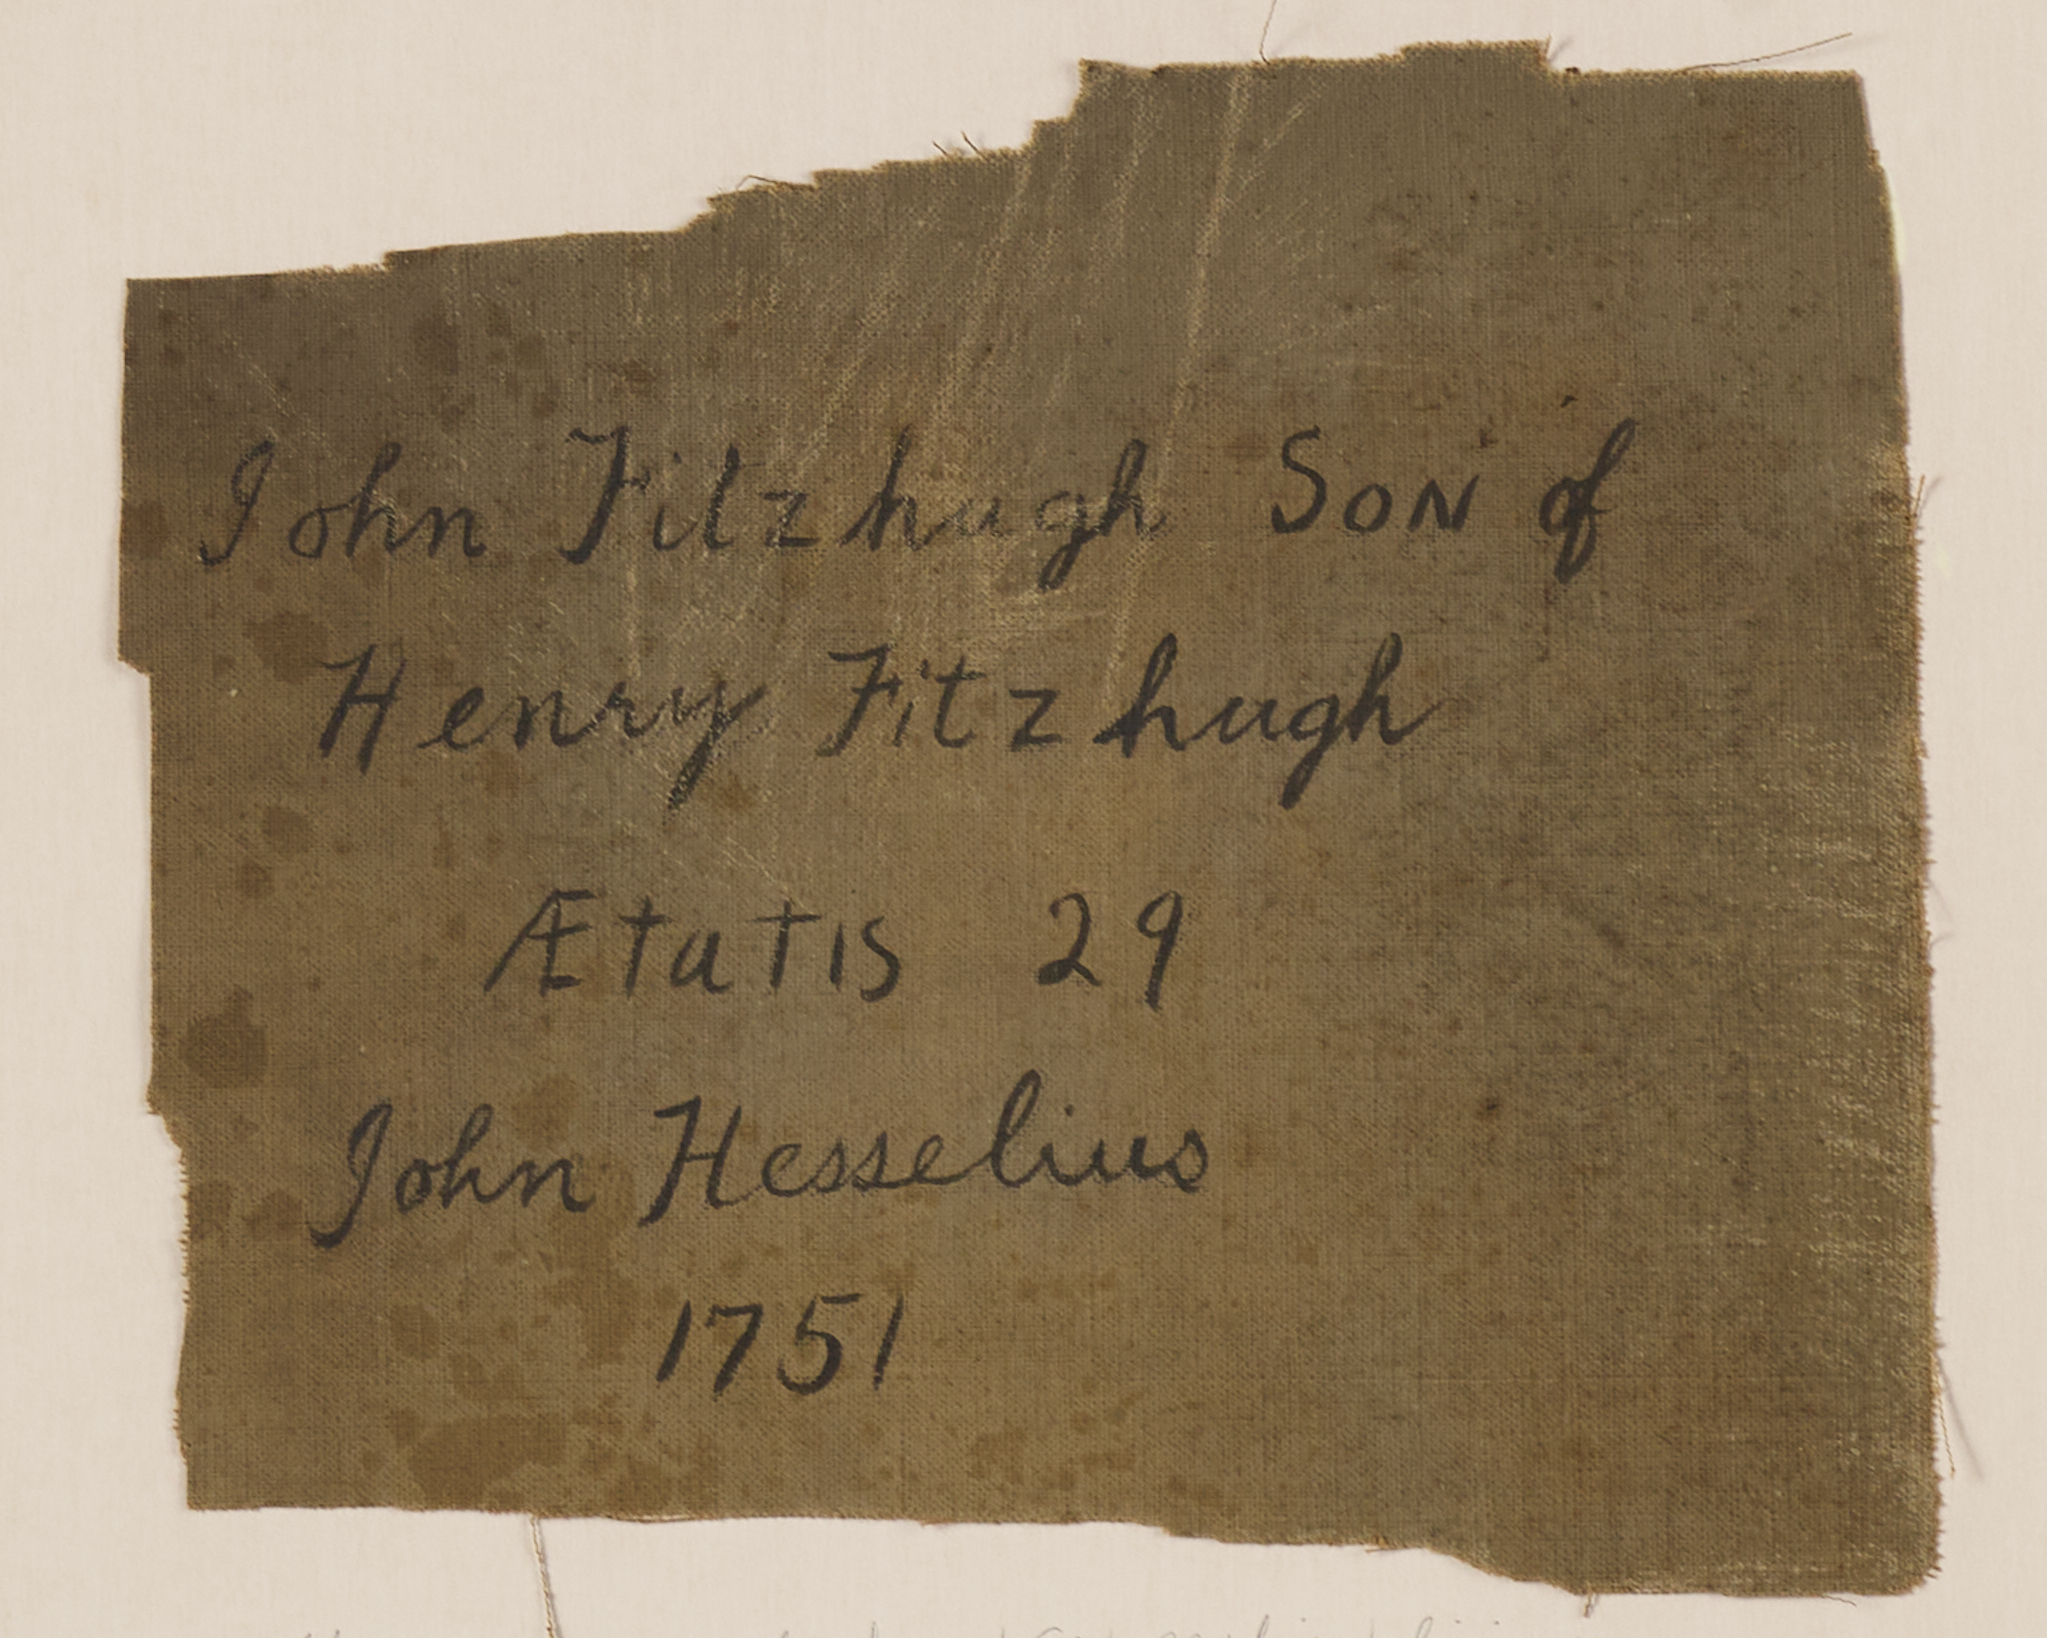 John Fitzhugh Son of
Henry Fitzhugh
Ætatis 29
John Hesselius
1751